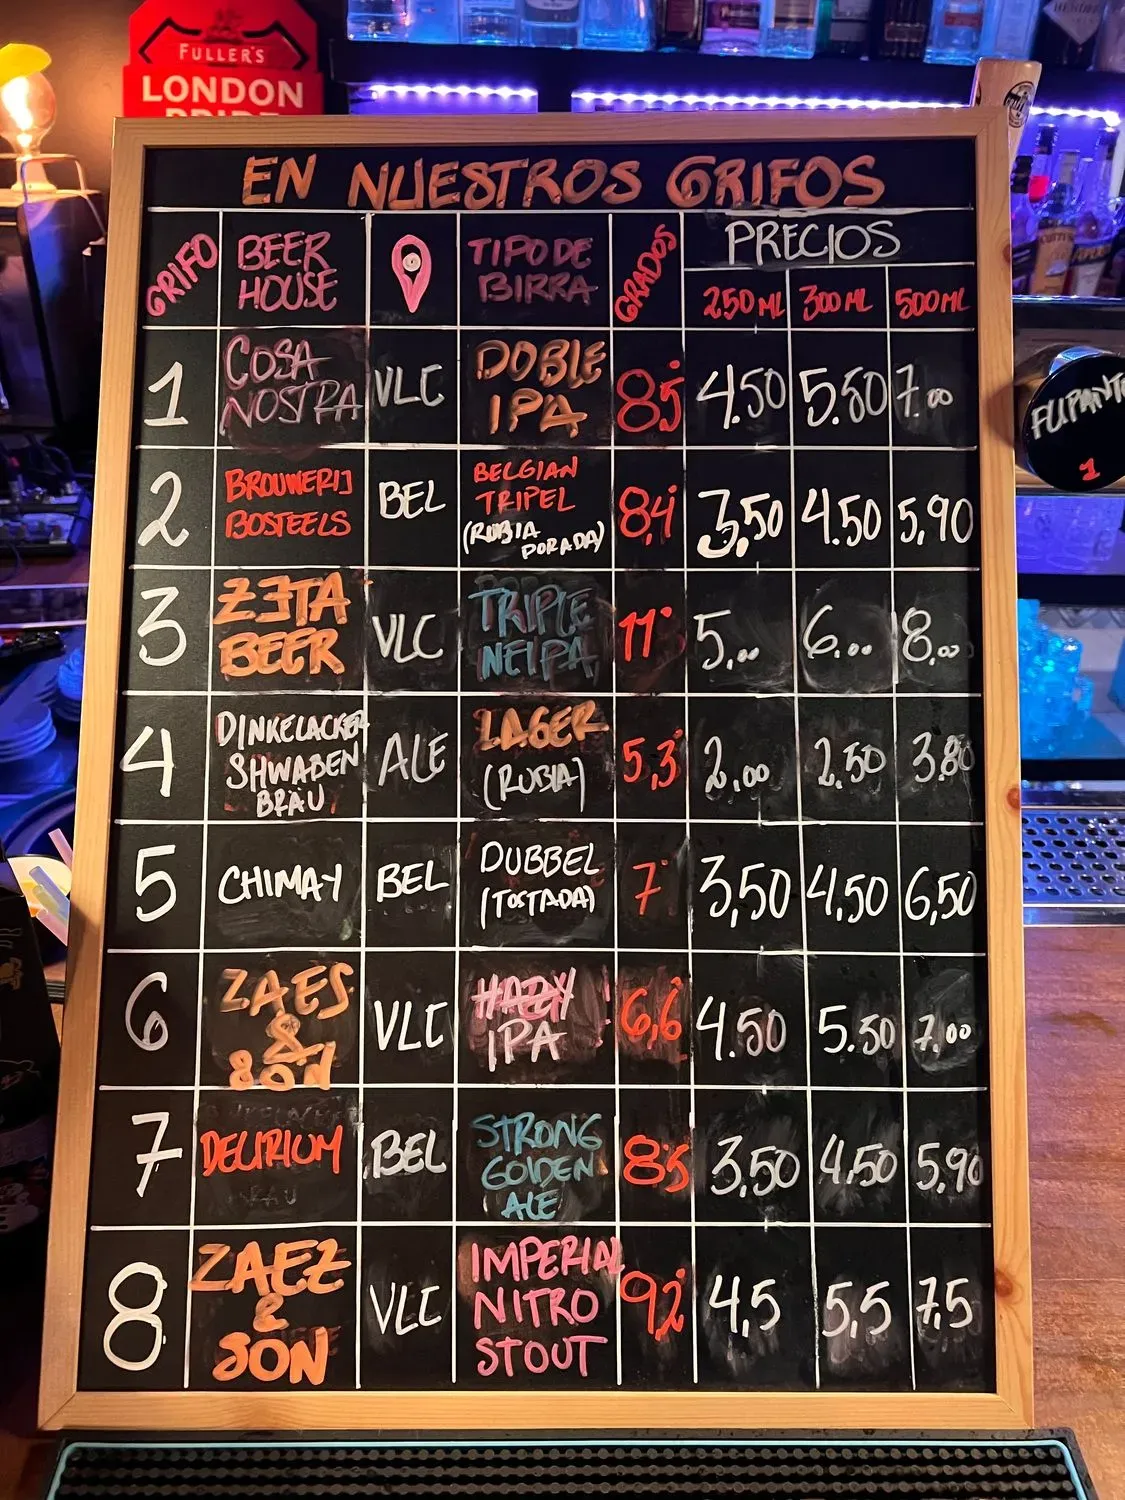 FULLER'S
LONDON
PRIDE
EN NUESTROS GRIFOS
GRIFO
BEER
HOUSE
TIPO DE
BIRRA
GRADOS
PRECIOS
250 ML
300 ML
500 ML
1
COSA
NOSTRA
VLC
DOBLE
IPA
8'5°
4.50
5.50
7.00
2
BROUWERIJ
BOSTEELS
BEL
BELGIAN
TRIPEL
(RUBIA
PORADA)
8,4°
3,50
4.50
5,90
3
ZETA
BEER
VLC
TRIPLE
NEIPA
11°
5,00
6,00
8,00
4
DINKELACKER
SHWABEN
BRÄU
ALE
LAGER
(RUBIA)
5,3°
2,00
2.50
3.80
5
CHIMAY
BEL
DUBBEL
(TOSTADA)
7°
3,50
4,50
6,50
6
ZAES
&
SON
VLC
HAZY
IPA
6,6°
4.50
5.50
7,00
7
DELIRIUM
BEL
STRONG
GOLDEN
ALE
8'5
3,50
4,50
5,90
8
ZAEZ
&
SON
VLC
IMPERIAL
NITRO
STOUT
9,2°
4,5
5,5
7,5
FLIPANTE
1